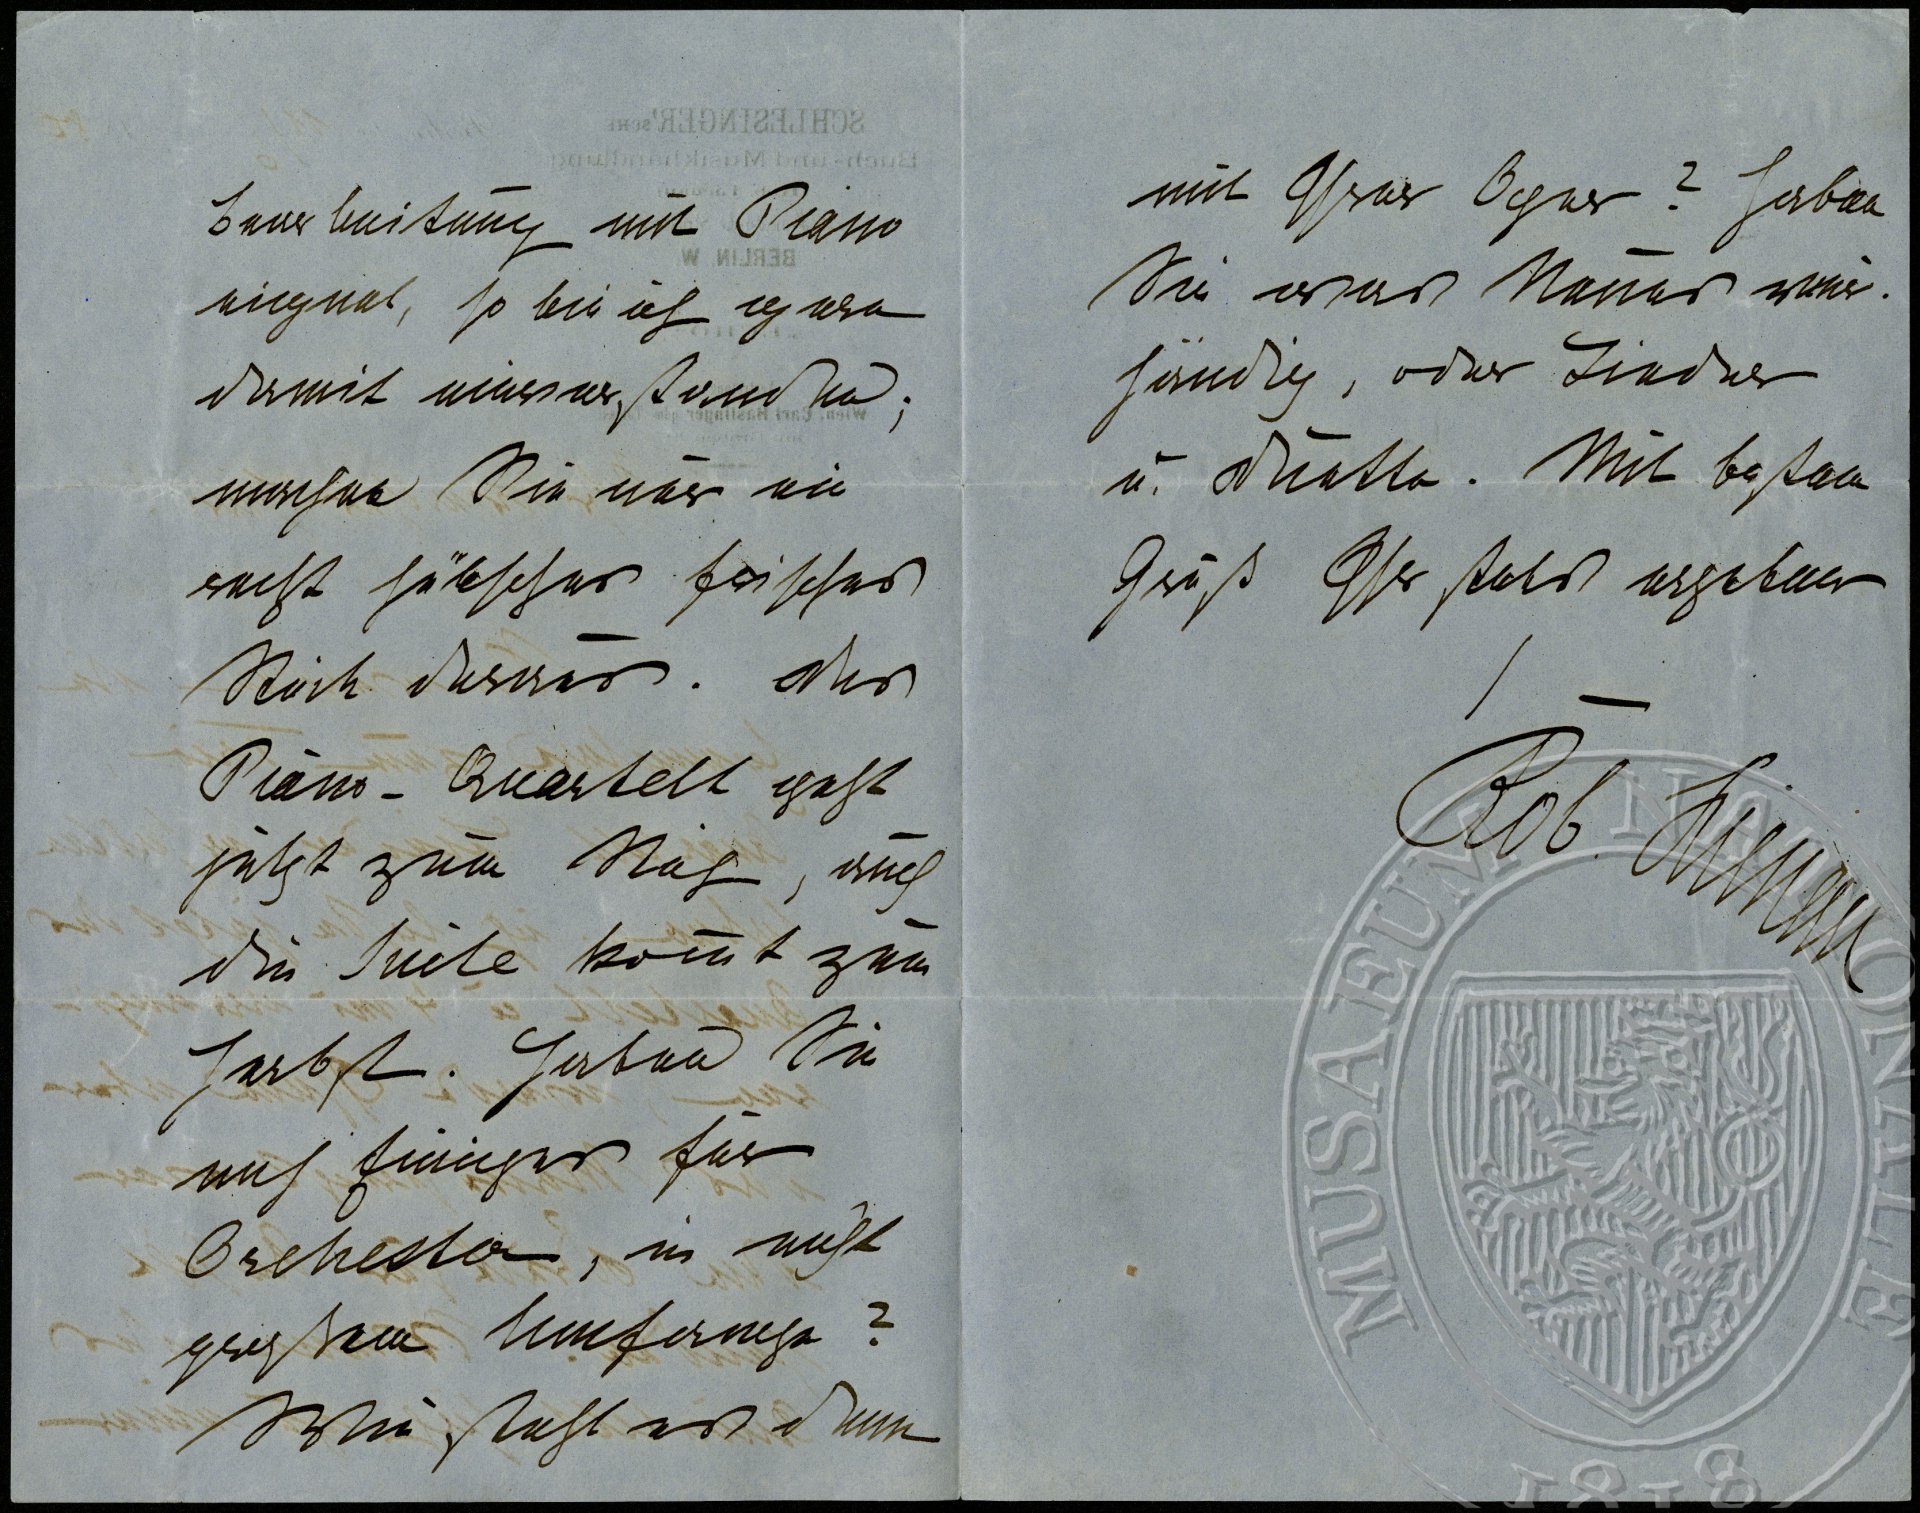 bearbeitung mit Piano
eignet, so bin ich gern
damit einverstanden;
machen Sie nur ein
recht hübsches frisches
Stück daraus. Das
Piano-Quartett geht
jetzt zum Stich, auch
die Suite kom̅t zum
Herbst. Haben Sie
noch Einiges für
Orchester, in nicht
grossem Umfange?
Wie steht es denn
mit Ihrer Oper? Haben
Sie etwas Neues vier-
händig, oder Lieder
u. Duette. Mit bestem
Gruß Ihr stets ergebener
Rob. Lienau
SCHLESINGER'sche
Buch- und Musikhandlung
BERLIN W.
Wien, Carl Haslinger
MUSAEUM NATIONALE
1818